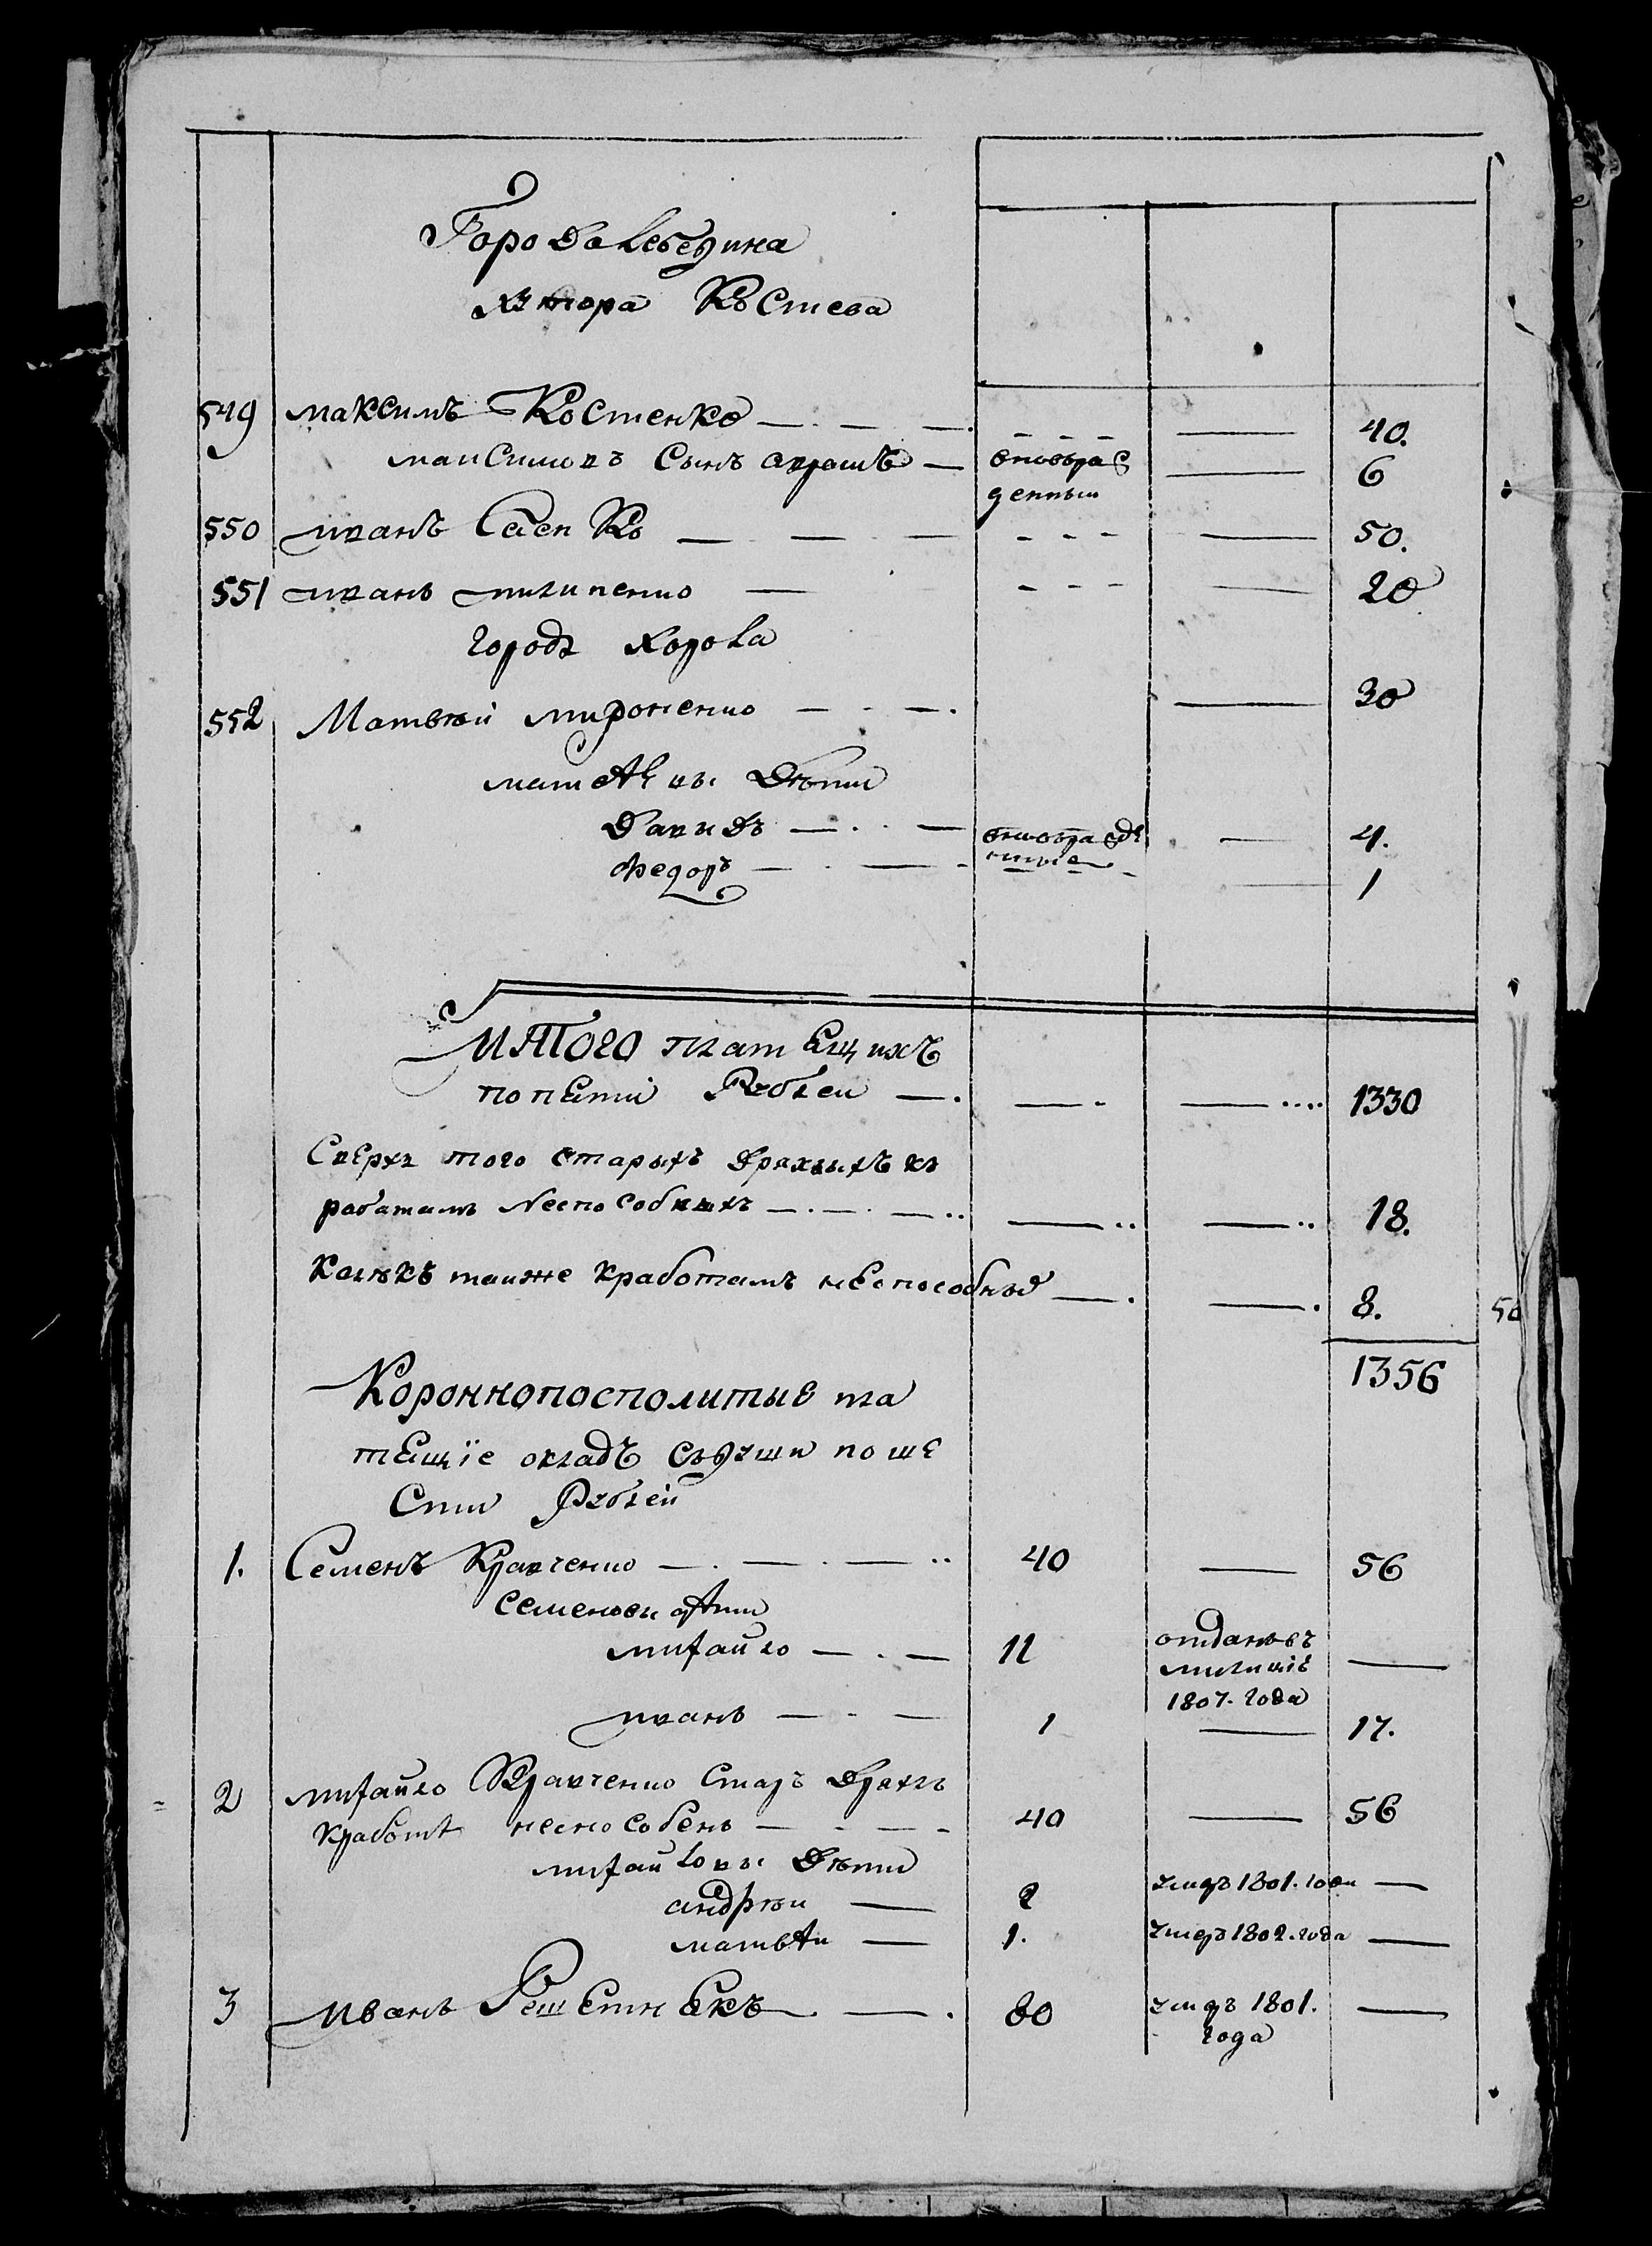 Города Лебедина
хутора Костева
549 максимъ Костенко 40.
максимовъ сынъ 6
денныи
550 иванъ Саенко 50.
551 иванъ пилипенко 20
города хорола
552 Матвѣй мироненко 30
матвѣевы дѣти
давидъ 4.
федоръ 1
Итого платещихъ
по пети рублеи 1330
Сверхъ того старыхъ дряхлыхъ къ
работамъ неспособныхъ 18.
Калѣкъ также кработамъ неспособные 8. 50
1356
Короннопосполитые пла
тещіе окладъ съ души по ше
сти рублей
1. Семенъ Кравченко 40 56
семеновы дѣти
михаило 11 отданъ въ
милиціи
1807. года
иванъ 1 17.
2 михаило Кравченко старъ дряхлъ
кработѣ неспособенъ 40 56
михайловы дѣти
андрѣи 2 умеръ 1801. года
матвѣи 1. умеръ 1802. года
3 иванъ Решетнекъ 80 умеръ 1801.
года